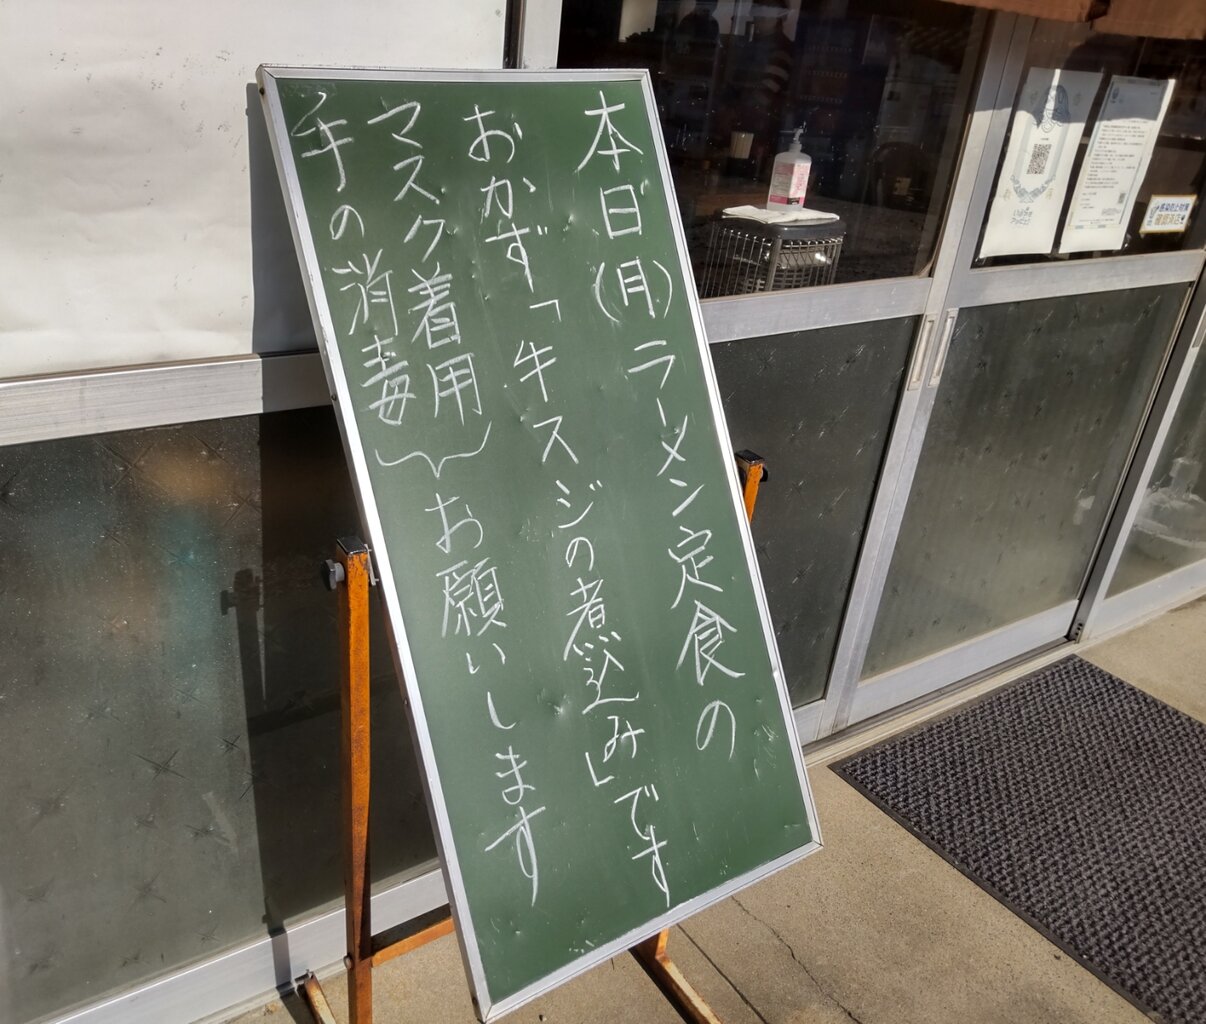 本日(月)ラーメン定食の
おかず「牛スジの煮込み」です
マスク着用
手の消毒
お願いします
感染防止対策